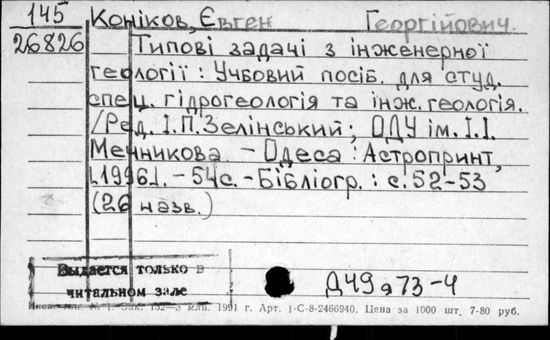 145 Коніков, Євген Георгійович.
26826 Типові задачі з інженерної
геології : Учбовий посіб. для студ.
спец. гідрогеологія та інж. геологія.
/Ред. І.П.Зелінський; ОДУ ім. І.І.
Мечникова. – Одеса : Астропринт,
[1996]. – 54с. – Бібліогр. : с. 52–53
(26 назв.)
Выдается только в
читальном зале
Д49 я73-4
№ 1. Зак. 132—3 млн. 1991 г. Арт. 1-С-8-2466940. Цена за 1000 шт. 7-80 руб.